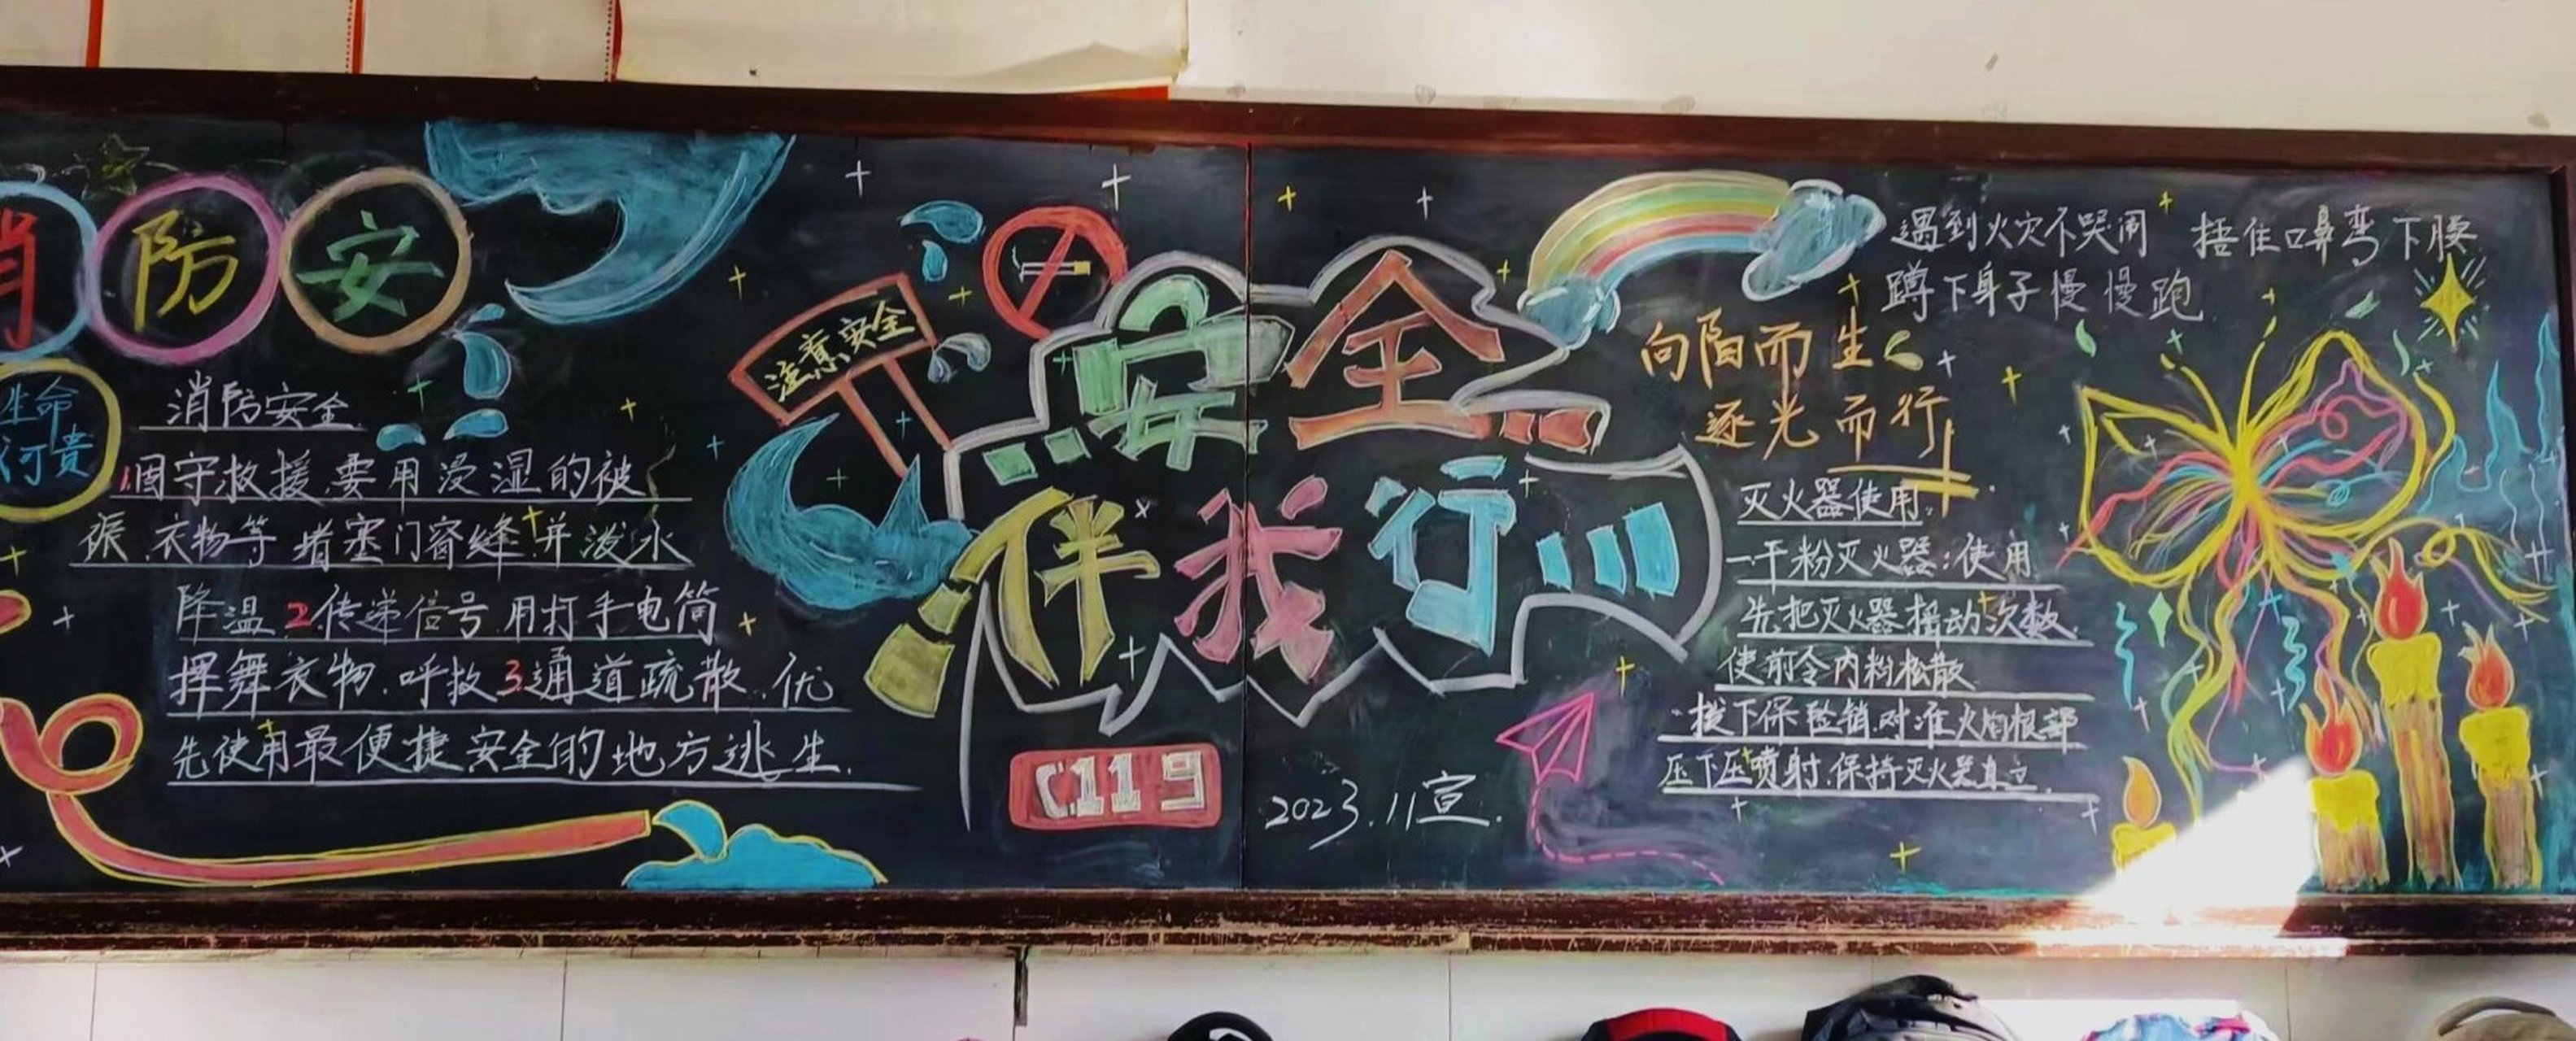 消防安
生命
可贵
消防安全
1.固守救援.要用浸湿的被
褥.衣物等堵塞门窗缝并泼水
降温2.传递信号.用打手电筒
挥舞衣物.呼救3.通道疏散.优
先使用最便捷安全的地方逃生.
注意安全
安全
伴我行
119
2023.11宣.
遇到火灾不哭闹 捂住口鼻弯下腰
蹲下身子慢慢跑
向阳而生
逐光而行
灭火器使用
一.干粉灭火器:使用
先把灭火器摇动次数.
使前令内粉松散
拔下保险销.对准火焰根部
压下压喷射.保持灭火器直立.